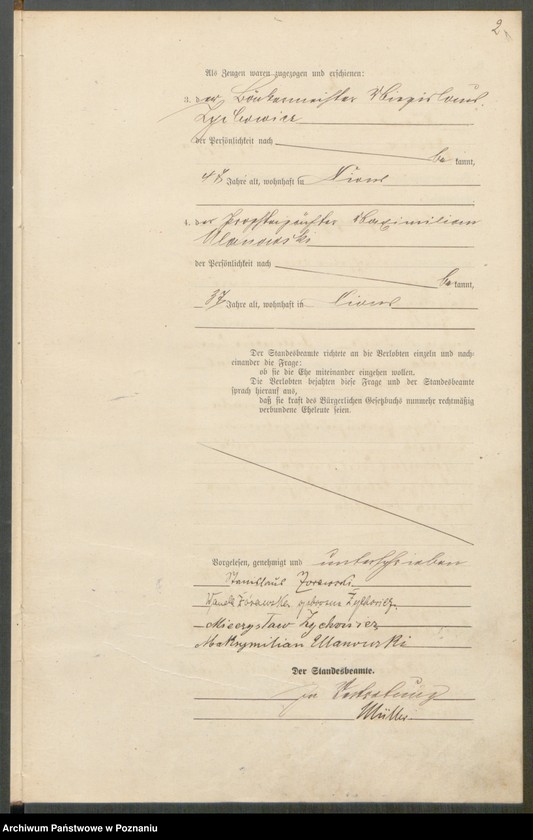 2.
Als Zeugen waren zugezogen und erschienen:
3. der Bäckermeister
der Persönlichkeit nach
be kannt,
48 Jahre alt, wohnhaft in Xions
4. der Propsteipächter Maximilian
Ulanowski
der Persönlichkeit nach
be kannt,
37 Jahre alt, wohnhaft in Xions
Der Standesbeamte richtete an die Verlobten einzeln und nach-
einander die Frage:
ob sie die Ehe miteinander eingehen wollen.
Die Verlobten bejahten diese Frage und der Standesbeamte
sprach hierauf aus,
daß sie kraft des Bürgerlichen Gesetzbuchs nunmehr rechtmäßig
verbundene Eheleute seien.
Vorgelesen, genehmigt und unterschrieben
Stanislaus Żórawski
Wanda Żórawska geborene Zychowicz
Mieczysław Zychowicz
Maksymilian Ulanowski
Der Standesbeamte.
In Vertretung
Müller
Archiwum Państwowe w Poznaniu